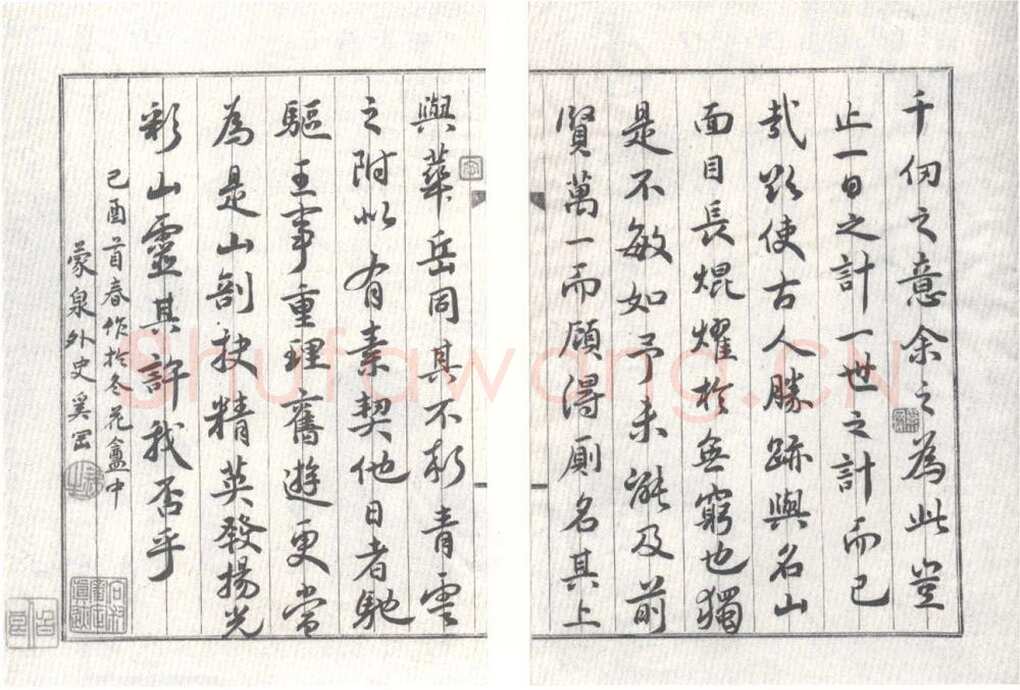 千仞之意余之為此豈
止一日之計一世之計而已
哉欲使古人勝跡與名山
面目長焜耀於無窮也獨
是不敏如予未能及前
賢萬一而顧得廁名其上
與華岳同其不朽青雲
之附似有素契他日者馳
驅王事重理舊遊更當
為是山剖抉精英發揚光
彩山靈其許我否乎
己酉首春作於冬花盦中
蒙泉外史奚岡
Shufawang.CN